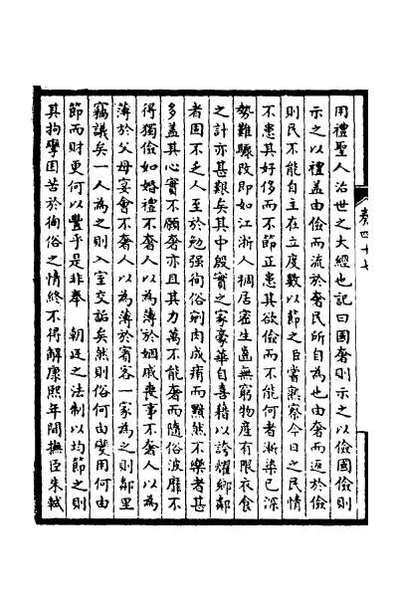 用禮聖人治世之大經也記曰國奢則示之以儉國儉則
示之以禮蓋由儉而流於奢民所自為也由奢而返於儉
則民不能自主在立度數以節之臣嘗熟察今日之民情
不患其好侈而不節正患其欲儉而不能何者漸染已深
勢難驟改即如江浙人稠居密生適無窮物產有限衣食
之計亦甚艱矣其中殷實之家豪華自喜藉以誇耀鄉鄰
者固不乏人至於勉強徇俗剜肉成瘡而黯然不樂者甚
多蓋其心實不願奢亦且其力萬不能奢而隨俗波靡不
得獨儉如婚禮不奢人以為薄於姻戚喪事不奢人以為
薄於父母宴會不奢人以為薄於賓客一家為之則鄰里
竊議矣一人為之則入室交詬矣然則俗何由變用何由
節而財更何以豐乎是非奉　朝廷之法制以均節之則
其拘攣困苦於徇俗之情終不得解康熙年間撫臣朱軾
卷四十七